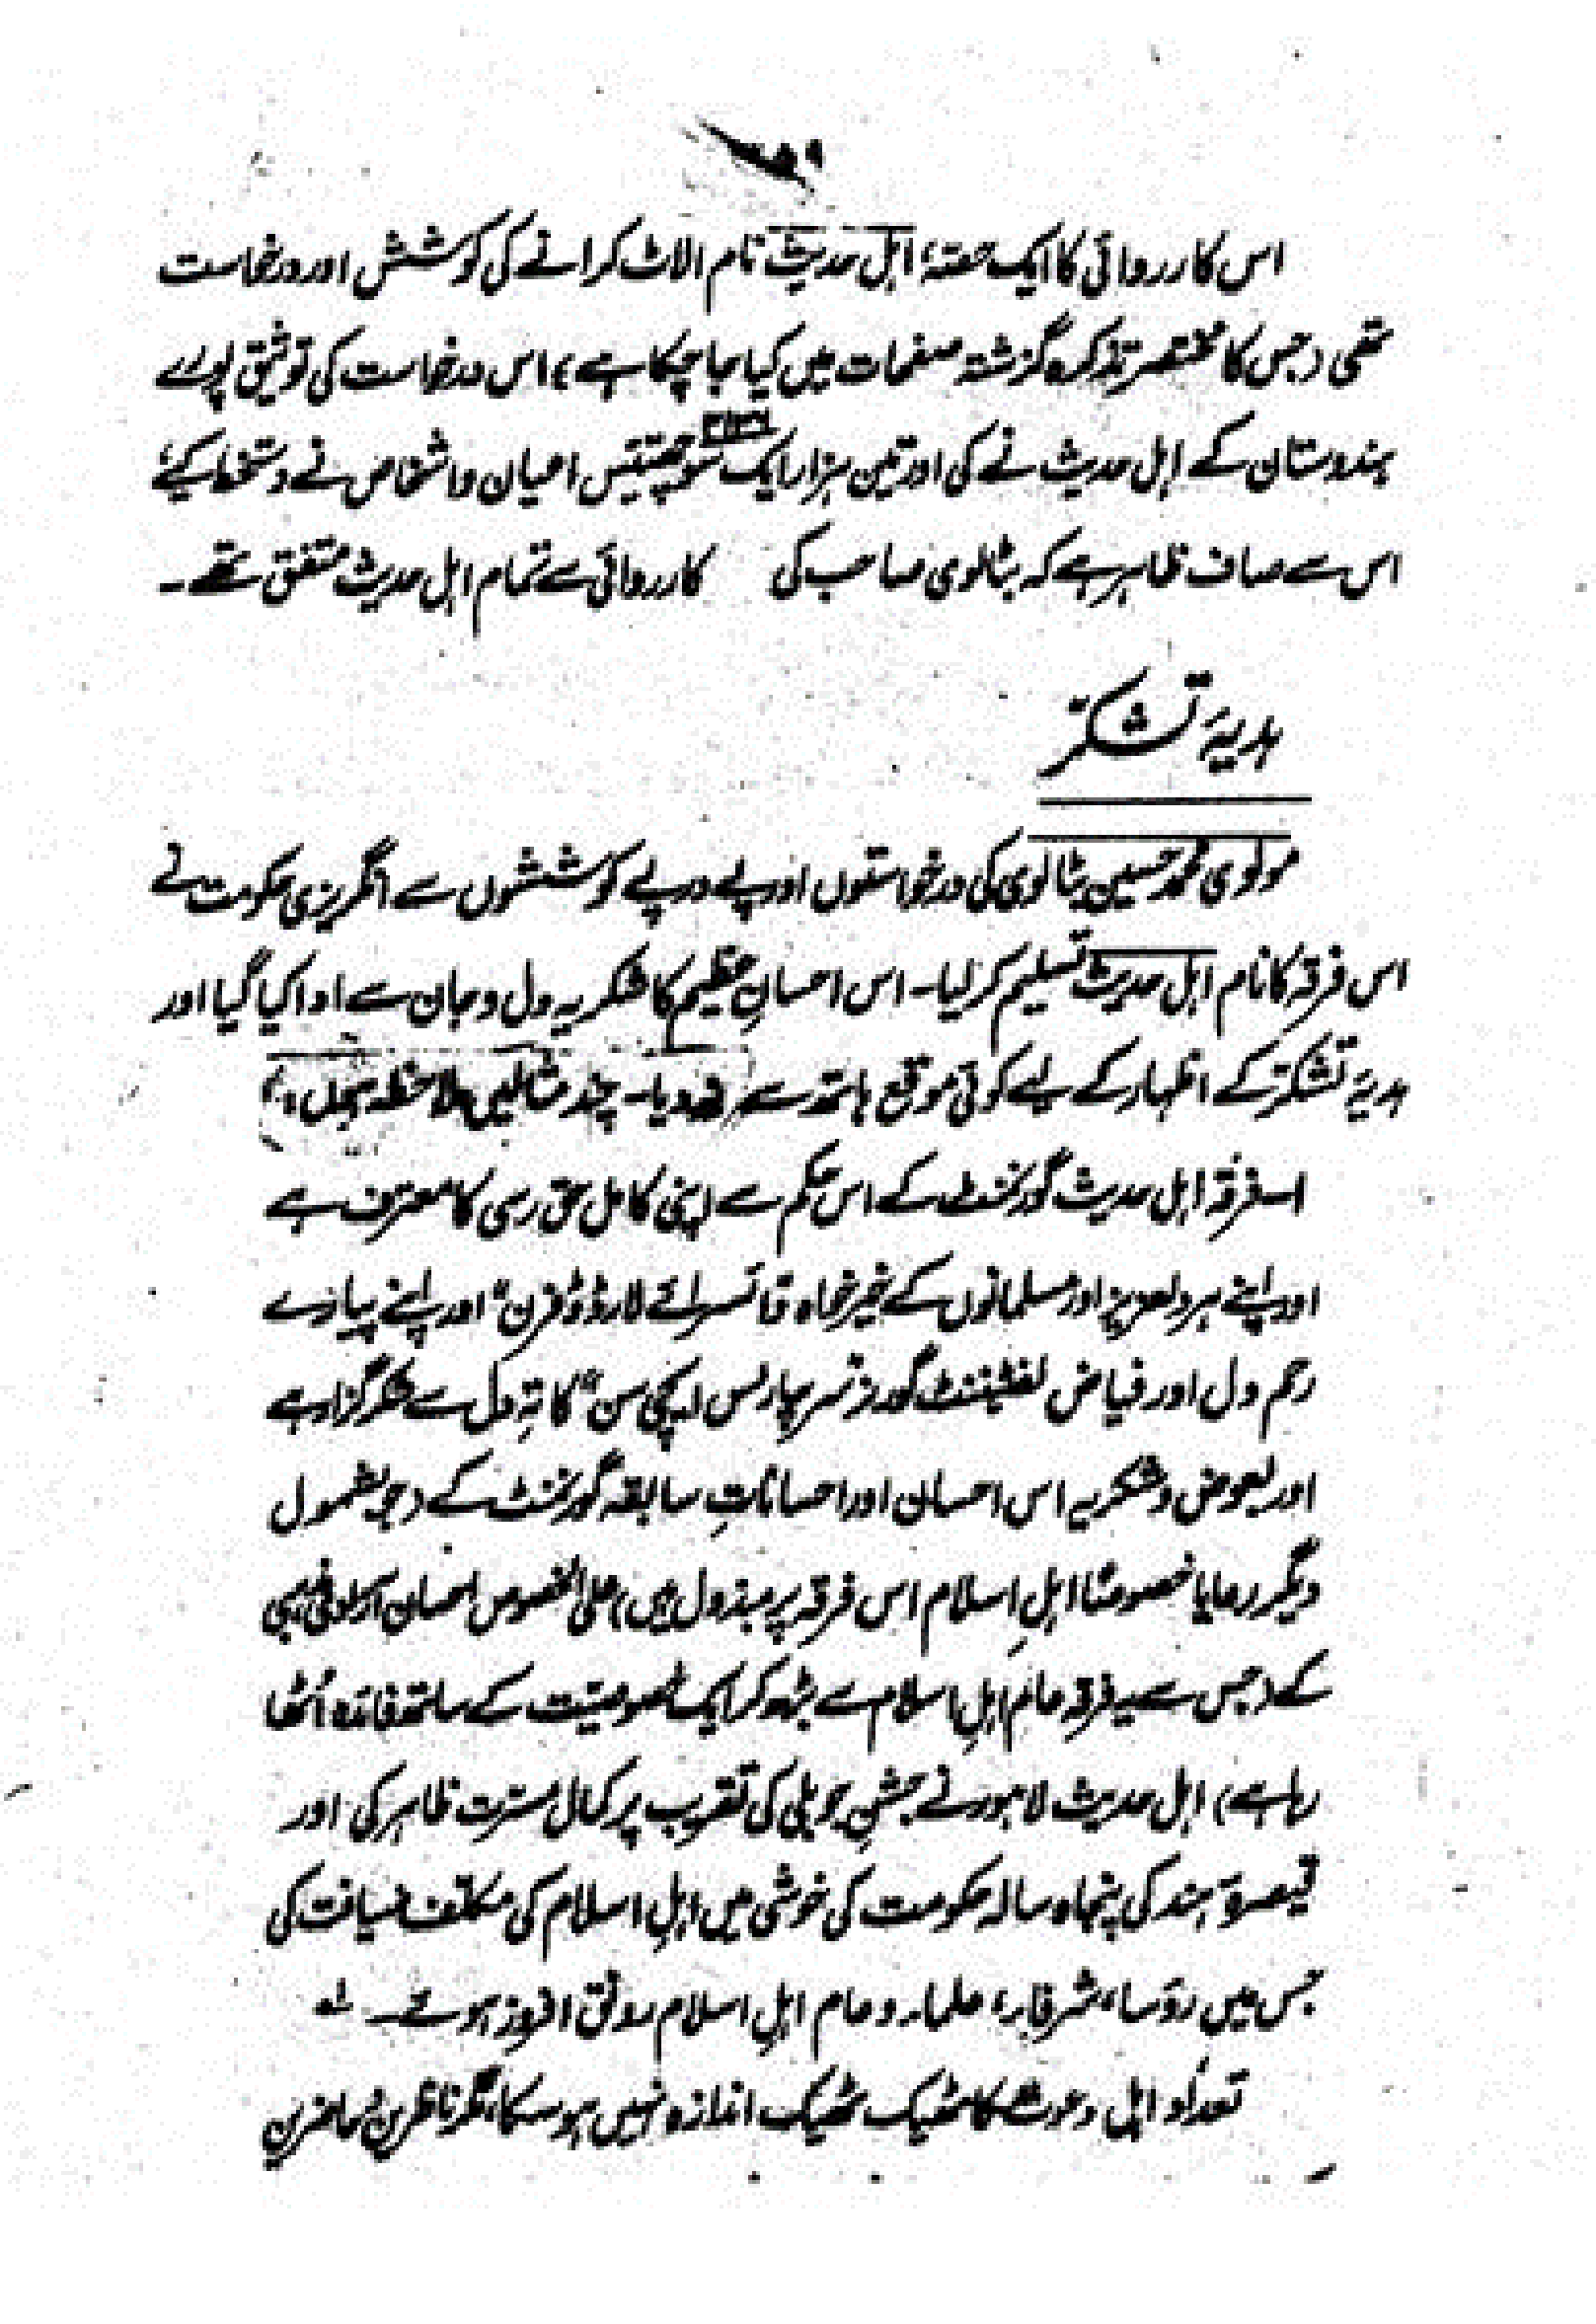 اس کارروائی کا ایک حصّہ؛ اہل حدیث نام الاٹ کرانے کی کوشش اور درخواست
تھی (جس کا مختصر تذکرہ گزشتہ صفحات میں کیا جا چکا ہے) اس درخواست کی توثیق پورے
ہندوستان کے اہل حدیث نے کی اور تین ہزار ایک سو چھتیس اعیان و اشخاص نے دستخط کیے
۳۱۳۶
اس سے صاف ظاہر ہے کہ بٹالوی صاحب کی کارروائی سے تمام اہل حدیث متفق تھے۔
ہدیۂ تشکّر
مولوی محمد حسین بٹالوی کی درخواستوں اور پے در پے کوششوں سے انگریزی حکومت نے
اس فرقہ کا نام اہل حدیث تسلیم کر لیا۔ اس احسانِ عظیم کا شکریہ دل و جان سے ادا کیا گیا اور
ہدیۂ تشکّر کے اظہار کے لیے کوئی موقع ہاتھ سے نہ دیا۔ چند مثالیں ملاحظہ ہوں،
اس فرقہ اہل حدیث گورنمنٹ کے اس حکم سے اپنی کامل حق رسی کا معترف ہے
اور اپنے ہر دلعزیز اور مسلمانوں کے خیر خواہ وائسرائے لارڈ ڈفرن" اور اپنے پیارے
رحم دل اور فیاض لفٹیننٹ گورنر سر چارلس ایچی سن" کا تہِ دل سے شکر گزار ہے
اور بعوض و شکریہ اس احسان اور احساناتِ سابقہ گورنمنٹ کے (جو بشمول
دیگر رعایا خصوصًا اہلِ اسلام اس فرقہ پر مبذول ہیں) علی الخصوص احسان آزادئ مذہبی
کے (جس سے یہ فرقہ عام اہلِ اسلام سے بڑھ کر ایک خصوصیّت کے ساتھ فائدہ اُٹھا
رہا ہے) اہل حدیث لاہور نے جشنِ جوبلی کی تقریب پر کمال مسرّت ظاہر کی اور
قیصرۂ ہند کی پنجاہ سالہ حکومت کی خوشی میں اہلِ اسلام کی مکلّف ضیافت کی
جس میں رؤسا، شرفاء، علماء و عام اہلِ اسلام رونق افروز ہوئے۔
تعداد اہل دعوت کا ٹھیک ٹھیک اندازہ نہیں ہو سکا، مگر ناظرین و حاضرین